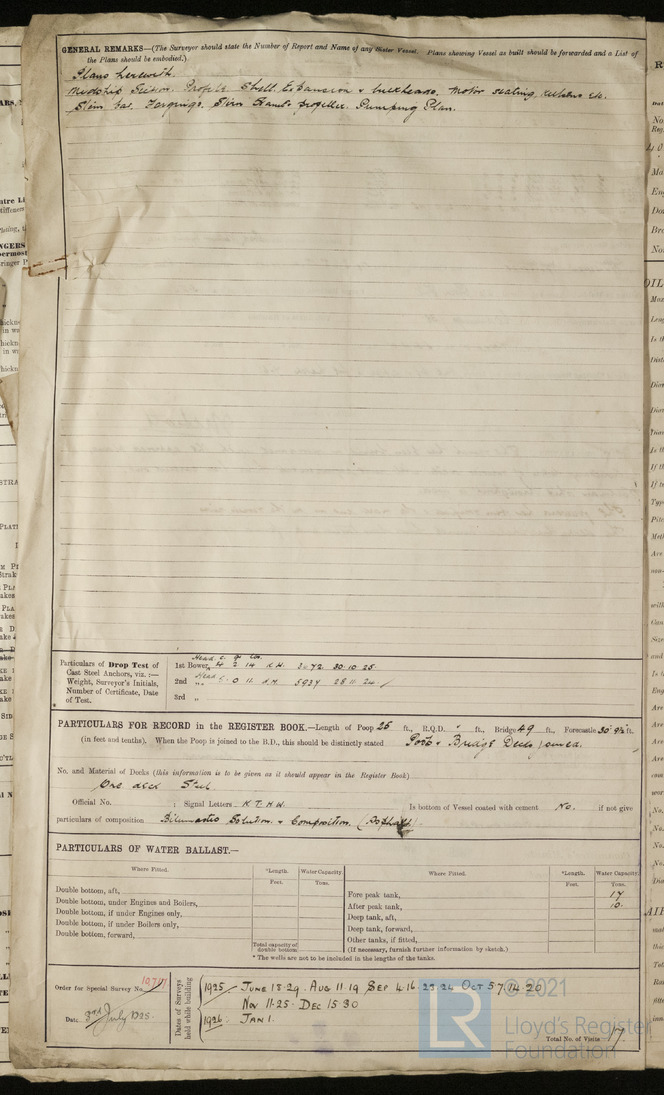 GENERAL REMARKS—(The Surveyor should state the Number of Report and Name of any Sister Vessel. Plans showing Vessel as built should be forwarded and a List of
the Plans should be embodied.)
Plans herewith.
Midship Section. Profile Shell Expansion & bulkheads. Motor seating
Stern bar. Forgings. Stern Frame propeller. Pumping Plan.
Particulars of Drop Test of
Cast Steel Anchors, viz. :—
Weight, Surveyor's Initials,
Number of Certificate, Date
of Test.
Head c. qr
1st Bower 4 2 14 K.H. 3472 30.10.25.
2nd „ Head 0 11 5937 28 11 24
3rd „
PARTICULARS FOR RECORD in the REGISTER BOOK.—Length of Poop 25 ft., R.Q.D. " ft., Bridge 49 ft., Forecastle 30 ft.
(in feet and tenths). When the Poop is joined to the B.D., this should be distinctly stated Poop & Bridge Decks joined.
No. and Material of Decks (this information is to be given as it should appear in the Register Book)
One deck Steel
Official No. ; Signal Letters K.T.H.W. Is bottom of Vessel coated with cement No. if not give
particulars of composition Bitumastic Solution & Composition. (Asphalt)
PARTICULARS OF WATER BALLAST.—
Where Fitted. *Length. Water Capacity. Where Fitted. *Length. Water Capacity.
Feet. Tons. Feet. Tons.
Double bottom, aft, Fore peak tank, 17
Double bottom, under Engines and Boilers, After peak tank, 10.
Double bottom, if under Engines only, Deep tank, aft,
Double bottom, if under Boilers only, Deep tank, forward,
Double bottom, forward, Other tanks, if fitted,
Total capacity of double bottom (If necessary, furnish further information by sketch.)
* The wells are not to be included in the lengths of the tanks.
Order for Special Survey No.
Date 3rd July 1925.
Dates of Surveys held while building
1925 June 18-29. Aug 11 19 Sep 4 16 23 26 Oct 5 7 14 20
Nov 11-25. Dec 15 30
1926 Jan 1.
Total No. of Visits 17.
© 2021
Lloyd's Register
Foundation
LR